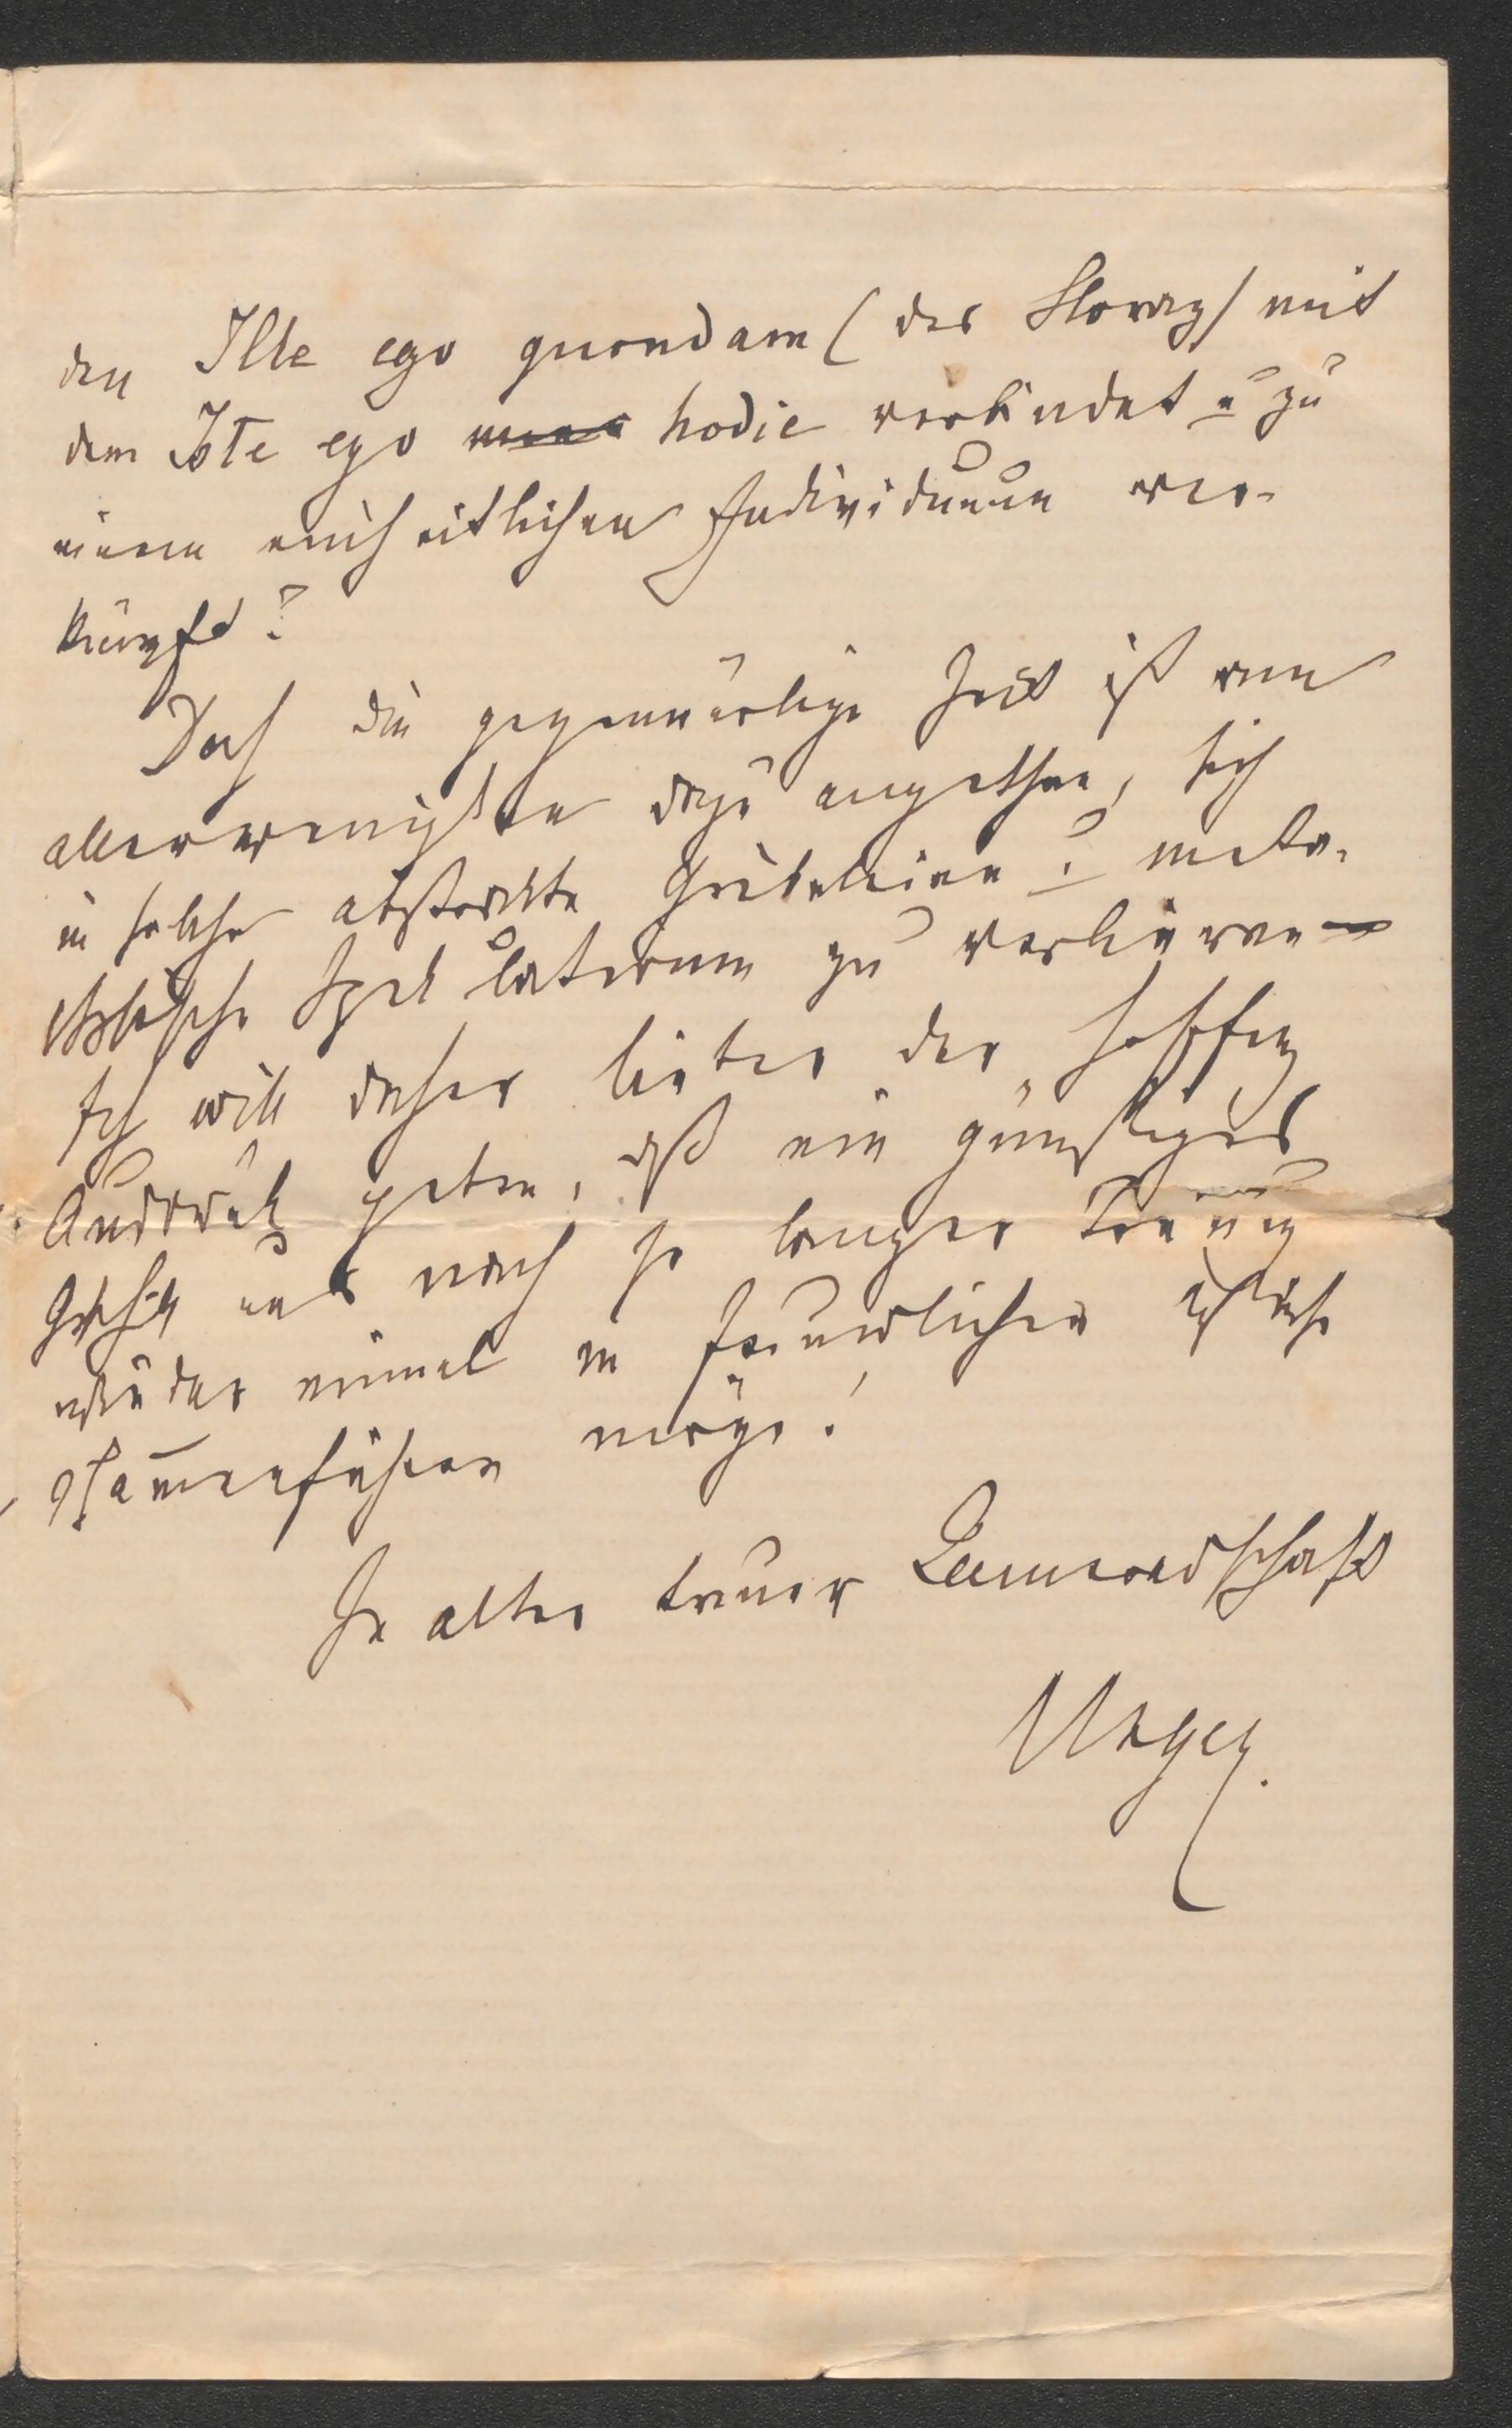 den Ille ego quondam (des Horaz) mit
dem Iste ego hodie verbindet u zu
einem einheitlichen Individuum ver-
knüpft?
Doch die gegenwärtige Zeit ist am
allerwenigsten dazu angethan, sich
in solche abstrakte Grübeleien u meta-
physische Spekulationen zu verlieren
Ich will daher lieber der Hoffng
Ausdruck geben, dß ein günstiges
Geschick uns nach so langer Trennng
wieder einmal in freundlicher
zusam̄enführen möge!
In alter treuer Kameradschaft
Unger.